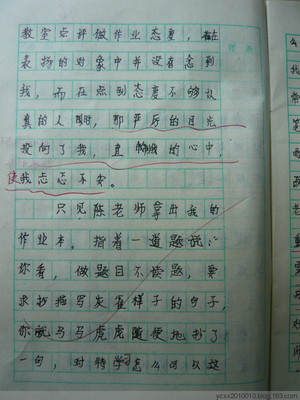 教室点评做作业态度，在
表扬的对象中并没有念到
我，而在点到态度不够认
真的人时，那严厉的目光
投向了我，直的心中，
使我忐忑不安。
只见陈老师拿出我的
作业本。指着一道题说：
你看，做题目不读题，要
求抄描写灰雀样子的句子，
你就马马虎虎随便地抄了
一句，对待学习怎么可以这
ycxx2010010.blog.163.com